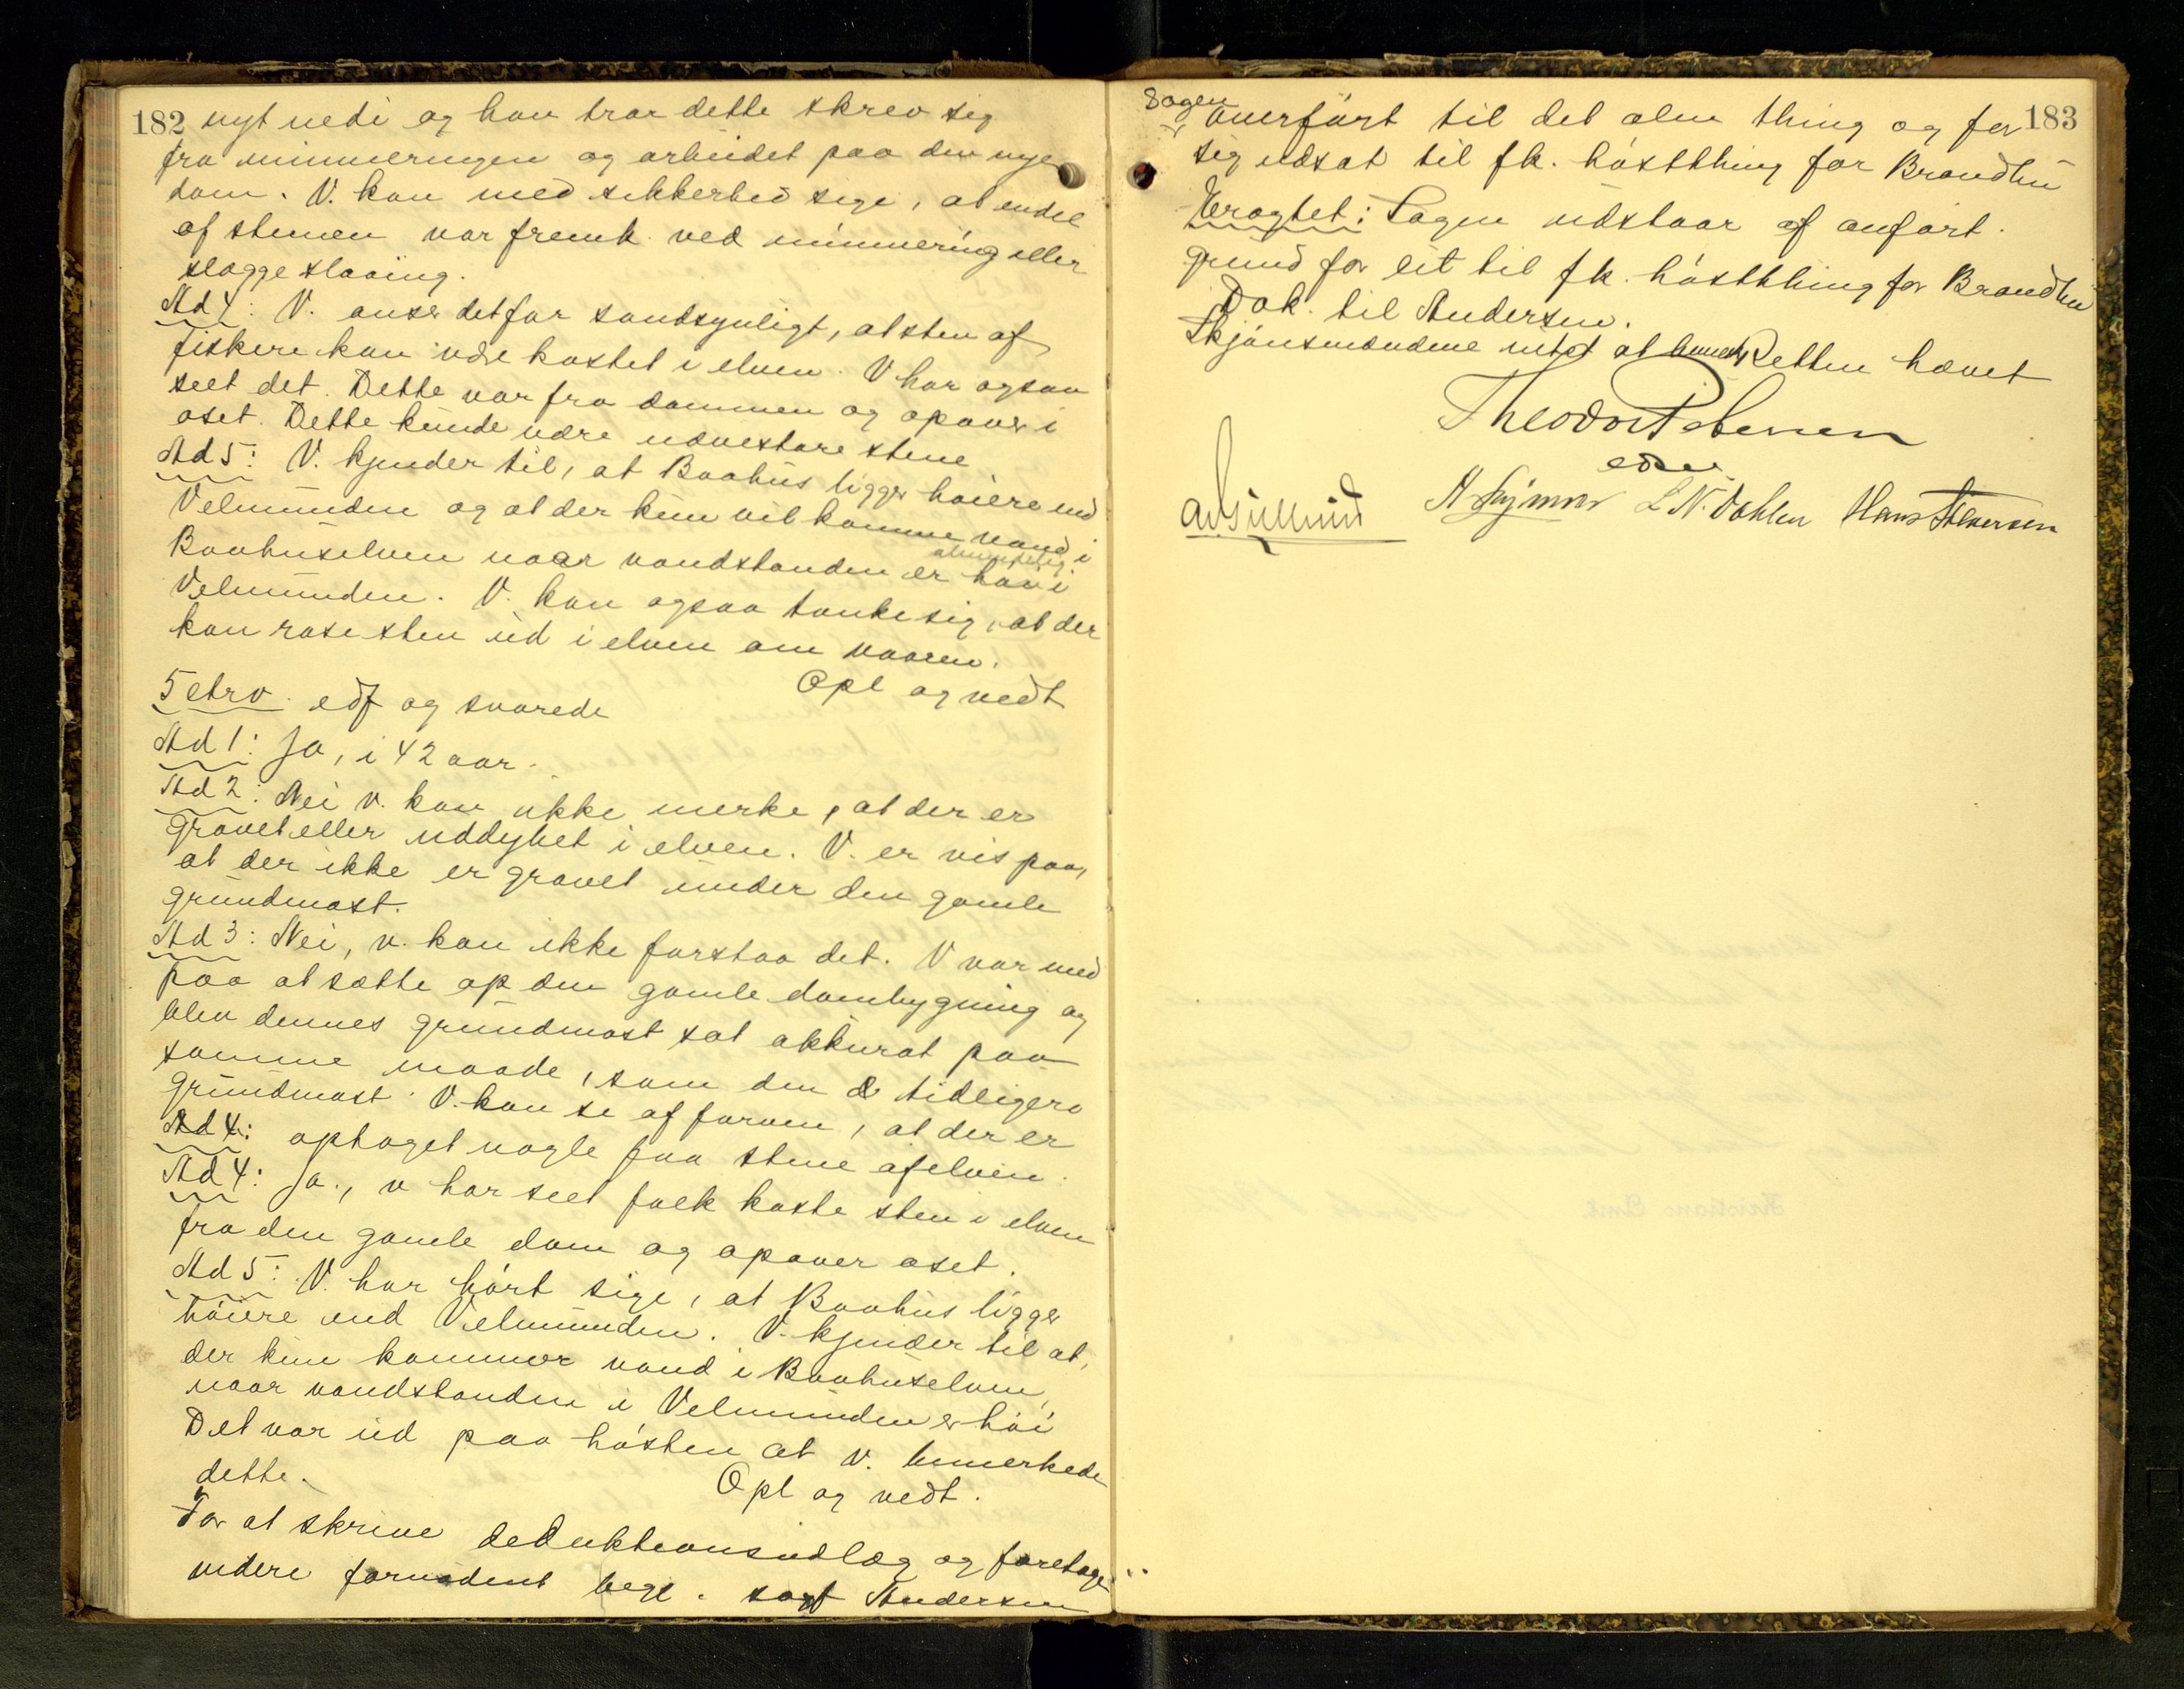 182 nyt nedi og han tror dette skrev sig
fra minneringen og arbeidet paa den nye
dam. V. kan med sikkerhed sige, at endel
af stenen var fremk. ved minnering eller
slæggeslaaing.
Ad 4: V. anser det for sandsynligt, at sten af
fiskere kan være kastet i elven. V har ogsaa
seet det. Dette var fra dammen og opover i
oset. Dette kunde være nævestore stene
Ad 5: V. kjender til, at Baahus ligger høiere end
Velmunden og at der kun vil komme vand i
almindelig
Baahuselven naar vandstanden er høi i
Velmunden. V. kan ogsaa tænke sig, at der
kan rase sten ud i elven om vaaren.
Opl og vedt
5 etrv. edf og svarede
Ad 1: Ja, i 42 aar.
Ad 2: Nei v. kan ikke merke, at der er
gravet eller uddybet i elven. V. er vis paa,
at der ikke er gravet under den gamle
grundmast.
Ad 3: Nei, v. kan ikke forstaa det. V var med
paa at sætte op den gamle dambygning og
blev dennes grundmast sat akkurat paa
samme maade, som den tidligere
grundmast. V. kan se af farven, at der er
Ad 4: optaget nogle faa stene af elven.
Ad 4: Ja., v har seet folk kaste sten i elven
fra den gamle dam og opover oset.
Ad 5: V. har hørt sige, at Baahus ligger
høiere end Velmunden. V. kjender til at,
der kun kommer vand i Baahuselven,
naar vandstanden i Velmunden er høi
Det var ud paa høsten at v. bemerkede
dette.
Opl og vedt.
For at skrive deduktionsindlæg og foretage
videre fornødent beg. sagf Andersen
Sagen 183
overført til det alm thing og for
sig udsat til fk. høstthing for Brandbu
Eragtet: Sagen udstaar af anført
grund for sit til fk. høstthing for Brandbu
Dok. til Andersen.
Skjønsmændene Retten hævet
Theodor Petersen
edsv
L. N. Dahlen Hans Halvorsen